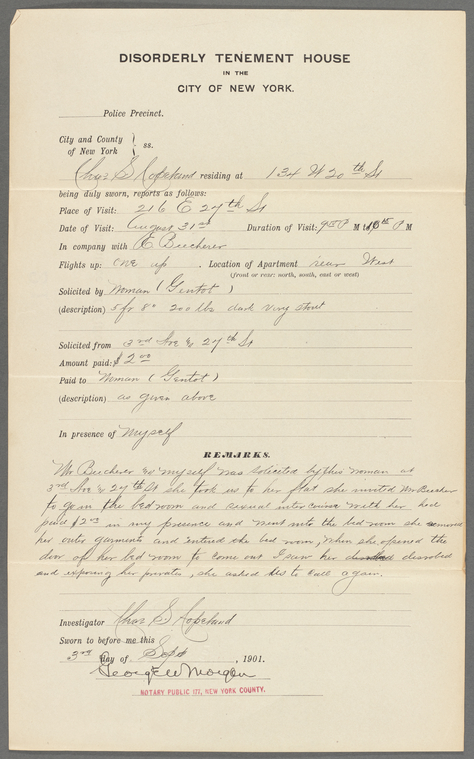 DISORDERLY TENEMENT HOUSE
IN THE
CITY OF NEW YORK.
Police Precinct.
City and County
of New York } ss.
Chas S Copeland residing at 134 W 20th St
being duly sworn, reports as follows:
Place of Visit: 216 E 27th St
Date of Visit: August 31st Duration of Visit: 9 P M to 10 P M
In company with E Beecherer
Flights up: One up . Location of Apartment rear West
(front or rear: north, south, east or west)
Solicited by Woman ( Gentot )
(description) 5 ft 8" 200 lbs dark very stout
Solicited from 3rd Ave & 27th St
Amount paid: $2.00
Paid to Woman ( Gentot )
(description) as given above
In presence of Myself
REMARKS.
Mr Beecherer & myself was solicited by this woman at
3rd Ave & 27th St she took us to her flat she invited Mr Beecher
to go in the bed room and sexual intercourse with her, he
paid $2.00 in my presence and went into the bed room she removed
her outer garments and entered the bed room, when she opened the
door of her bed room to come out I saw her disrobed
and exposing her privates, she asked us to call again.
Investigator Chas S Copeland
Sworn to before me this
3rd day of Sept , 1901.
George W Morgan
NOTARY PUBLIC 177, NEW YORK COUNTY.